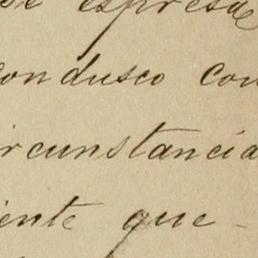 espresa
condusco con
ircunstancia
iente que